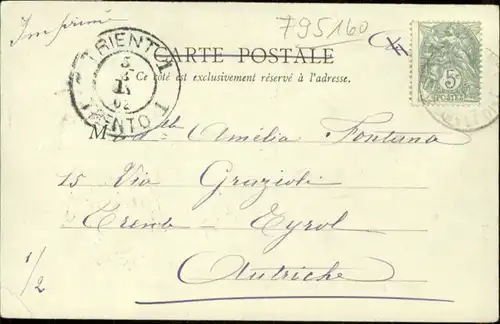 Imprimé
795160
CARTE POSTALE
Ce côté est exclusivement réservé à l'adresse.
TRIENTO 1
TRENTO 1
5
02
5c
POSTES
Mlle Amélia Fontana
15 Via Grazioli
Trente - Tyrol
Autriche
1/2